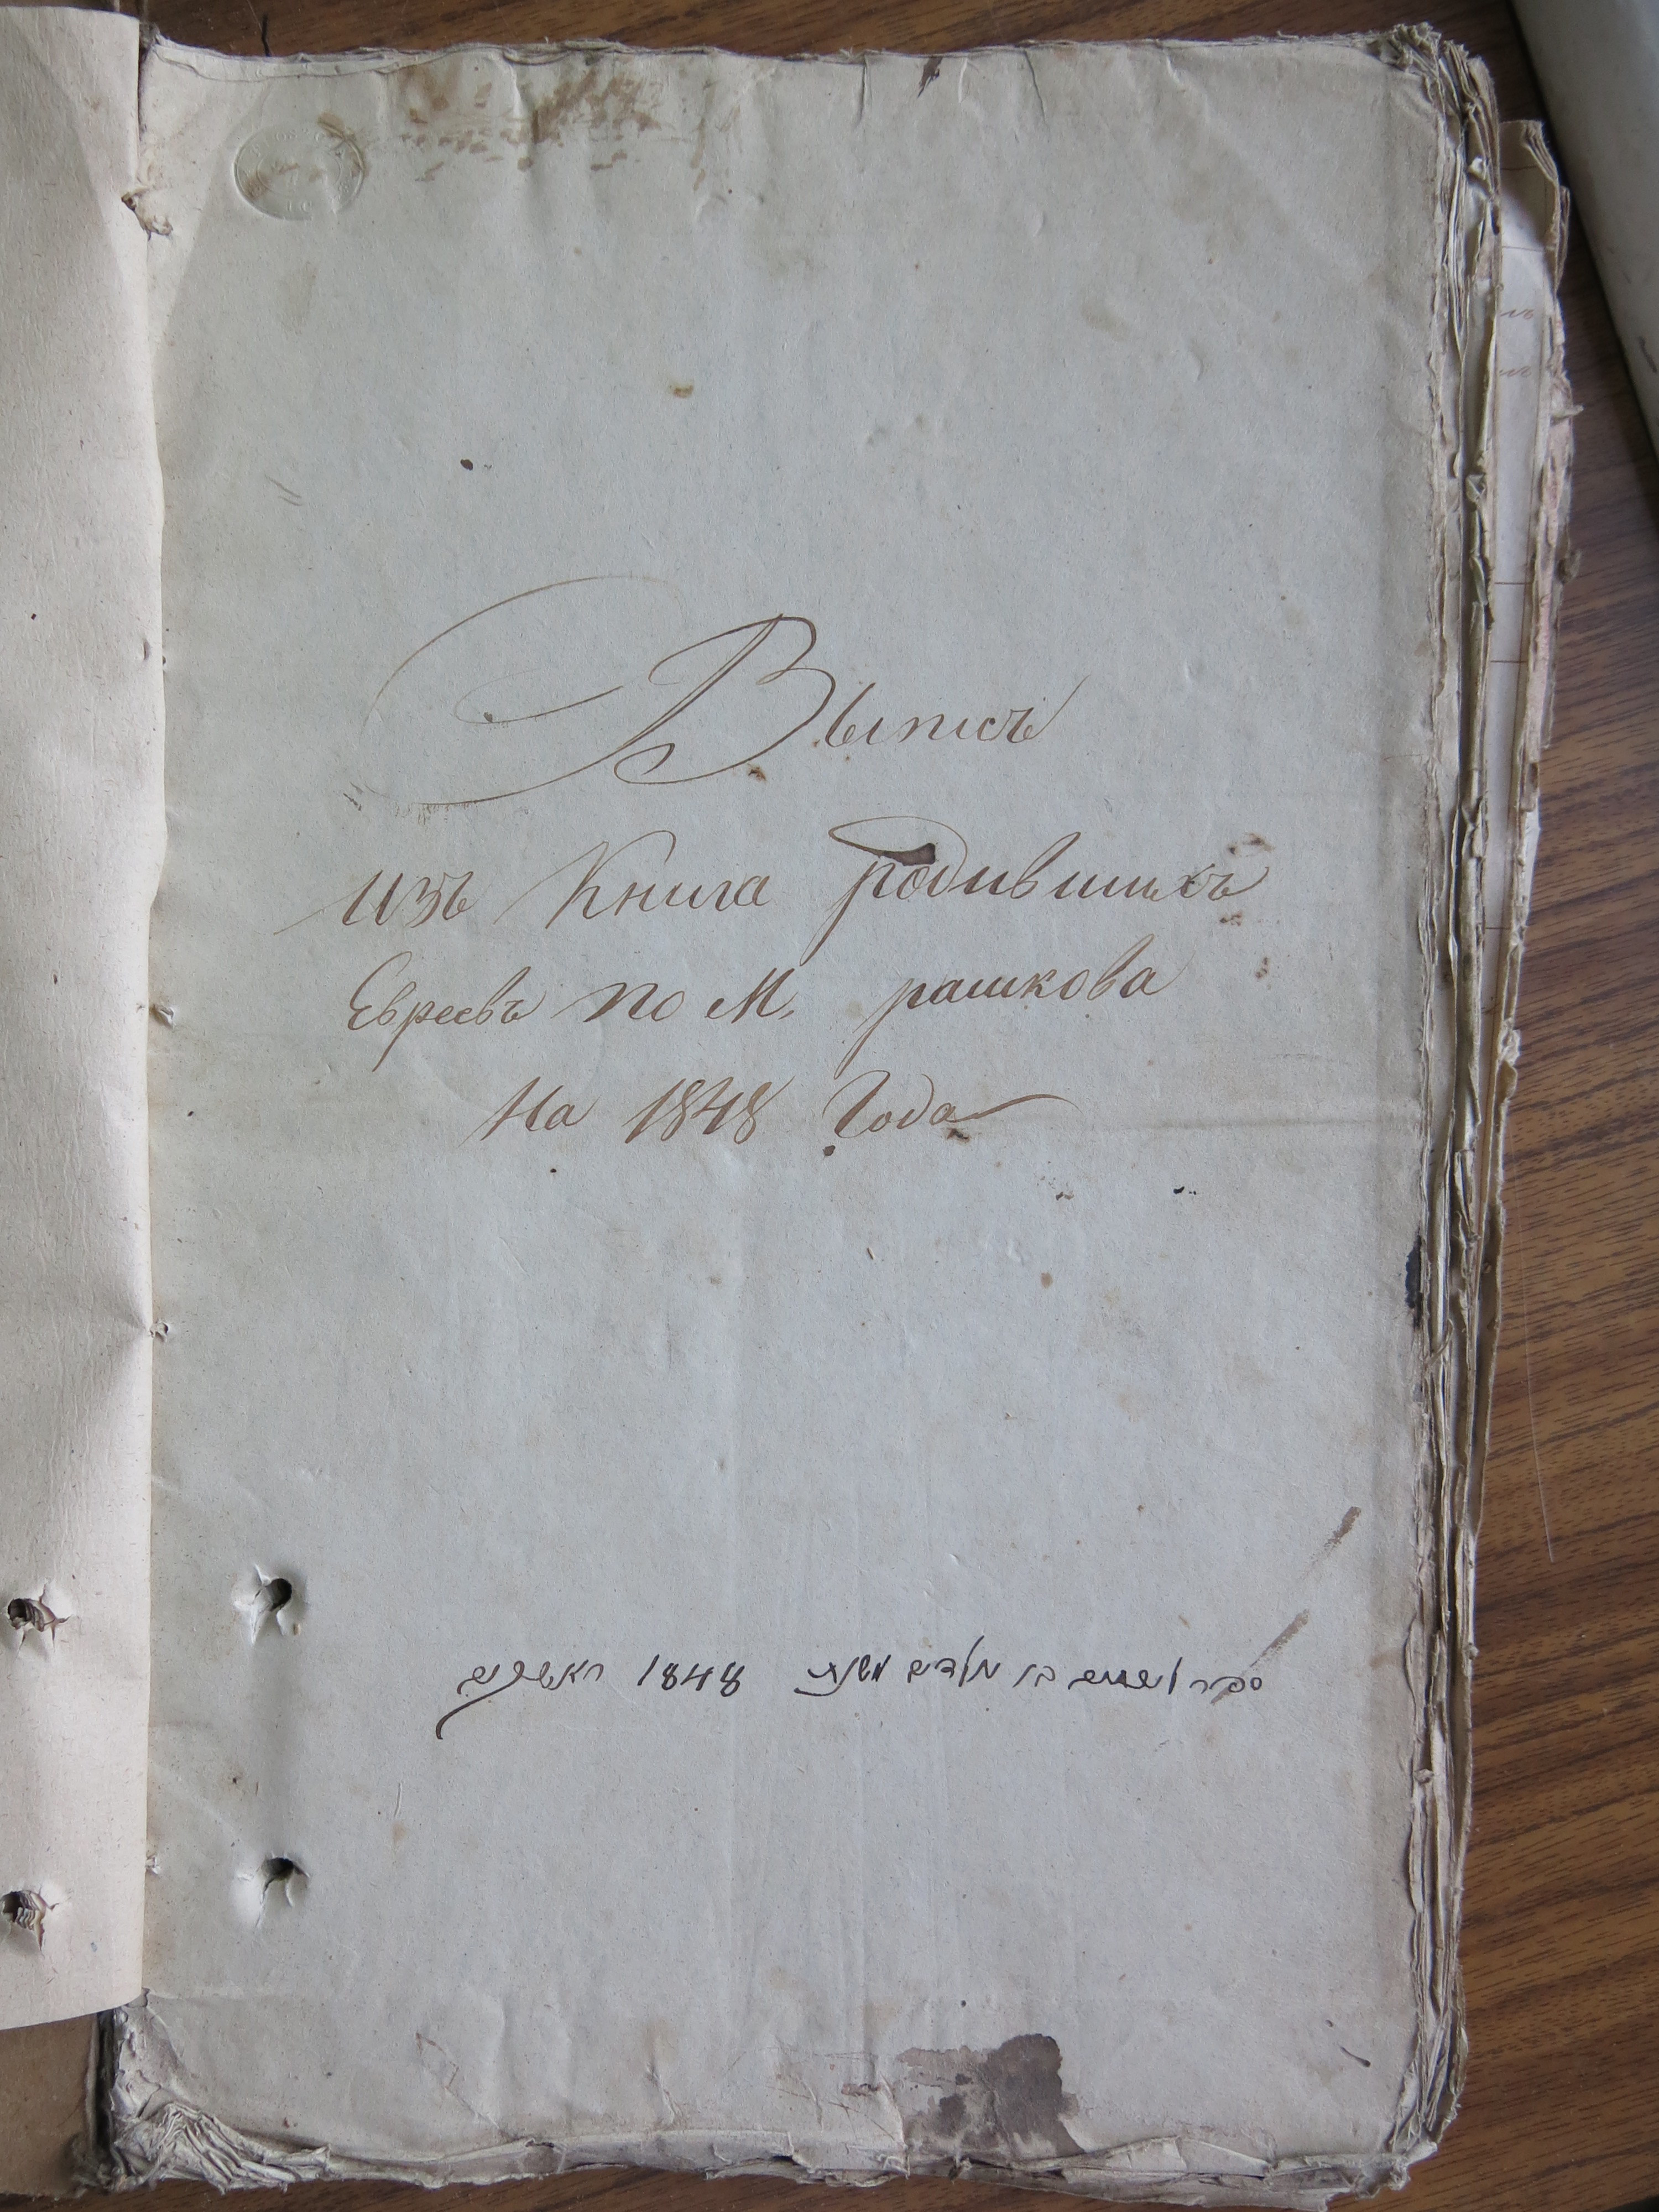 Выписъ
изъ Книга родившихъ
Евреевъ по М. рашкова
На 1848 Года
ספר 1848 ראשקוב